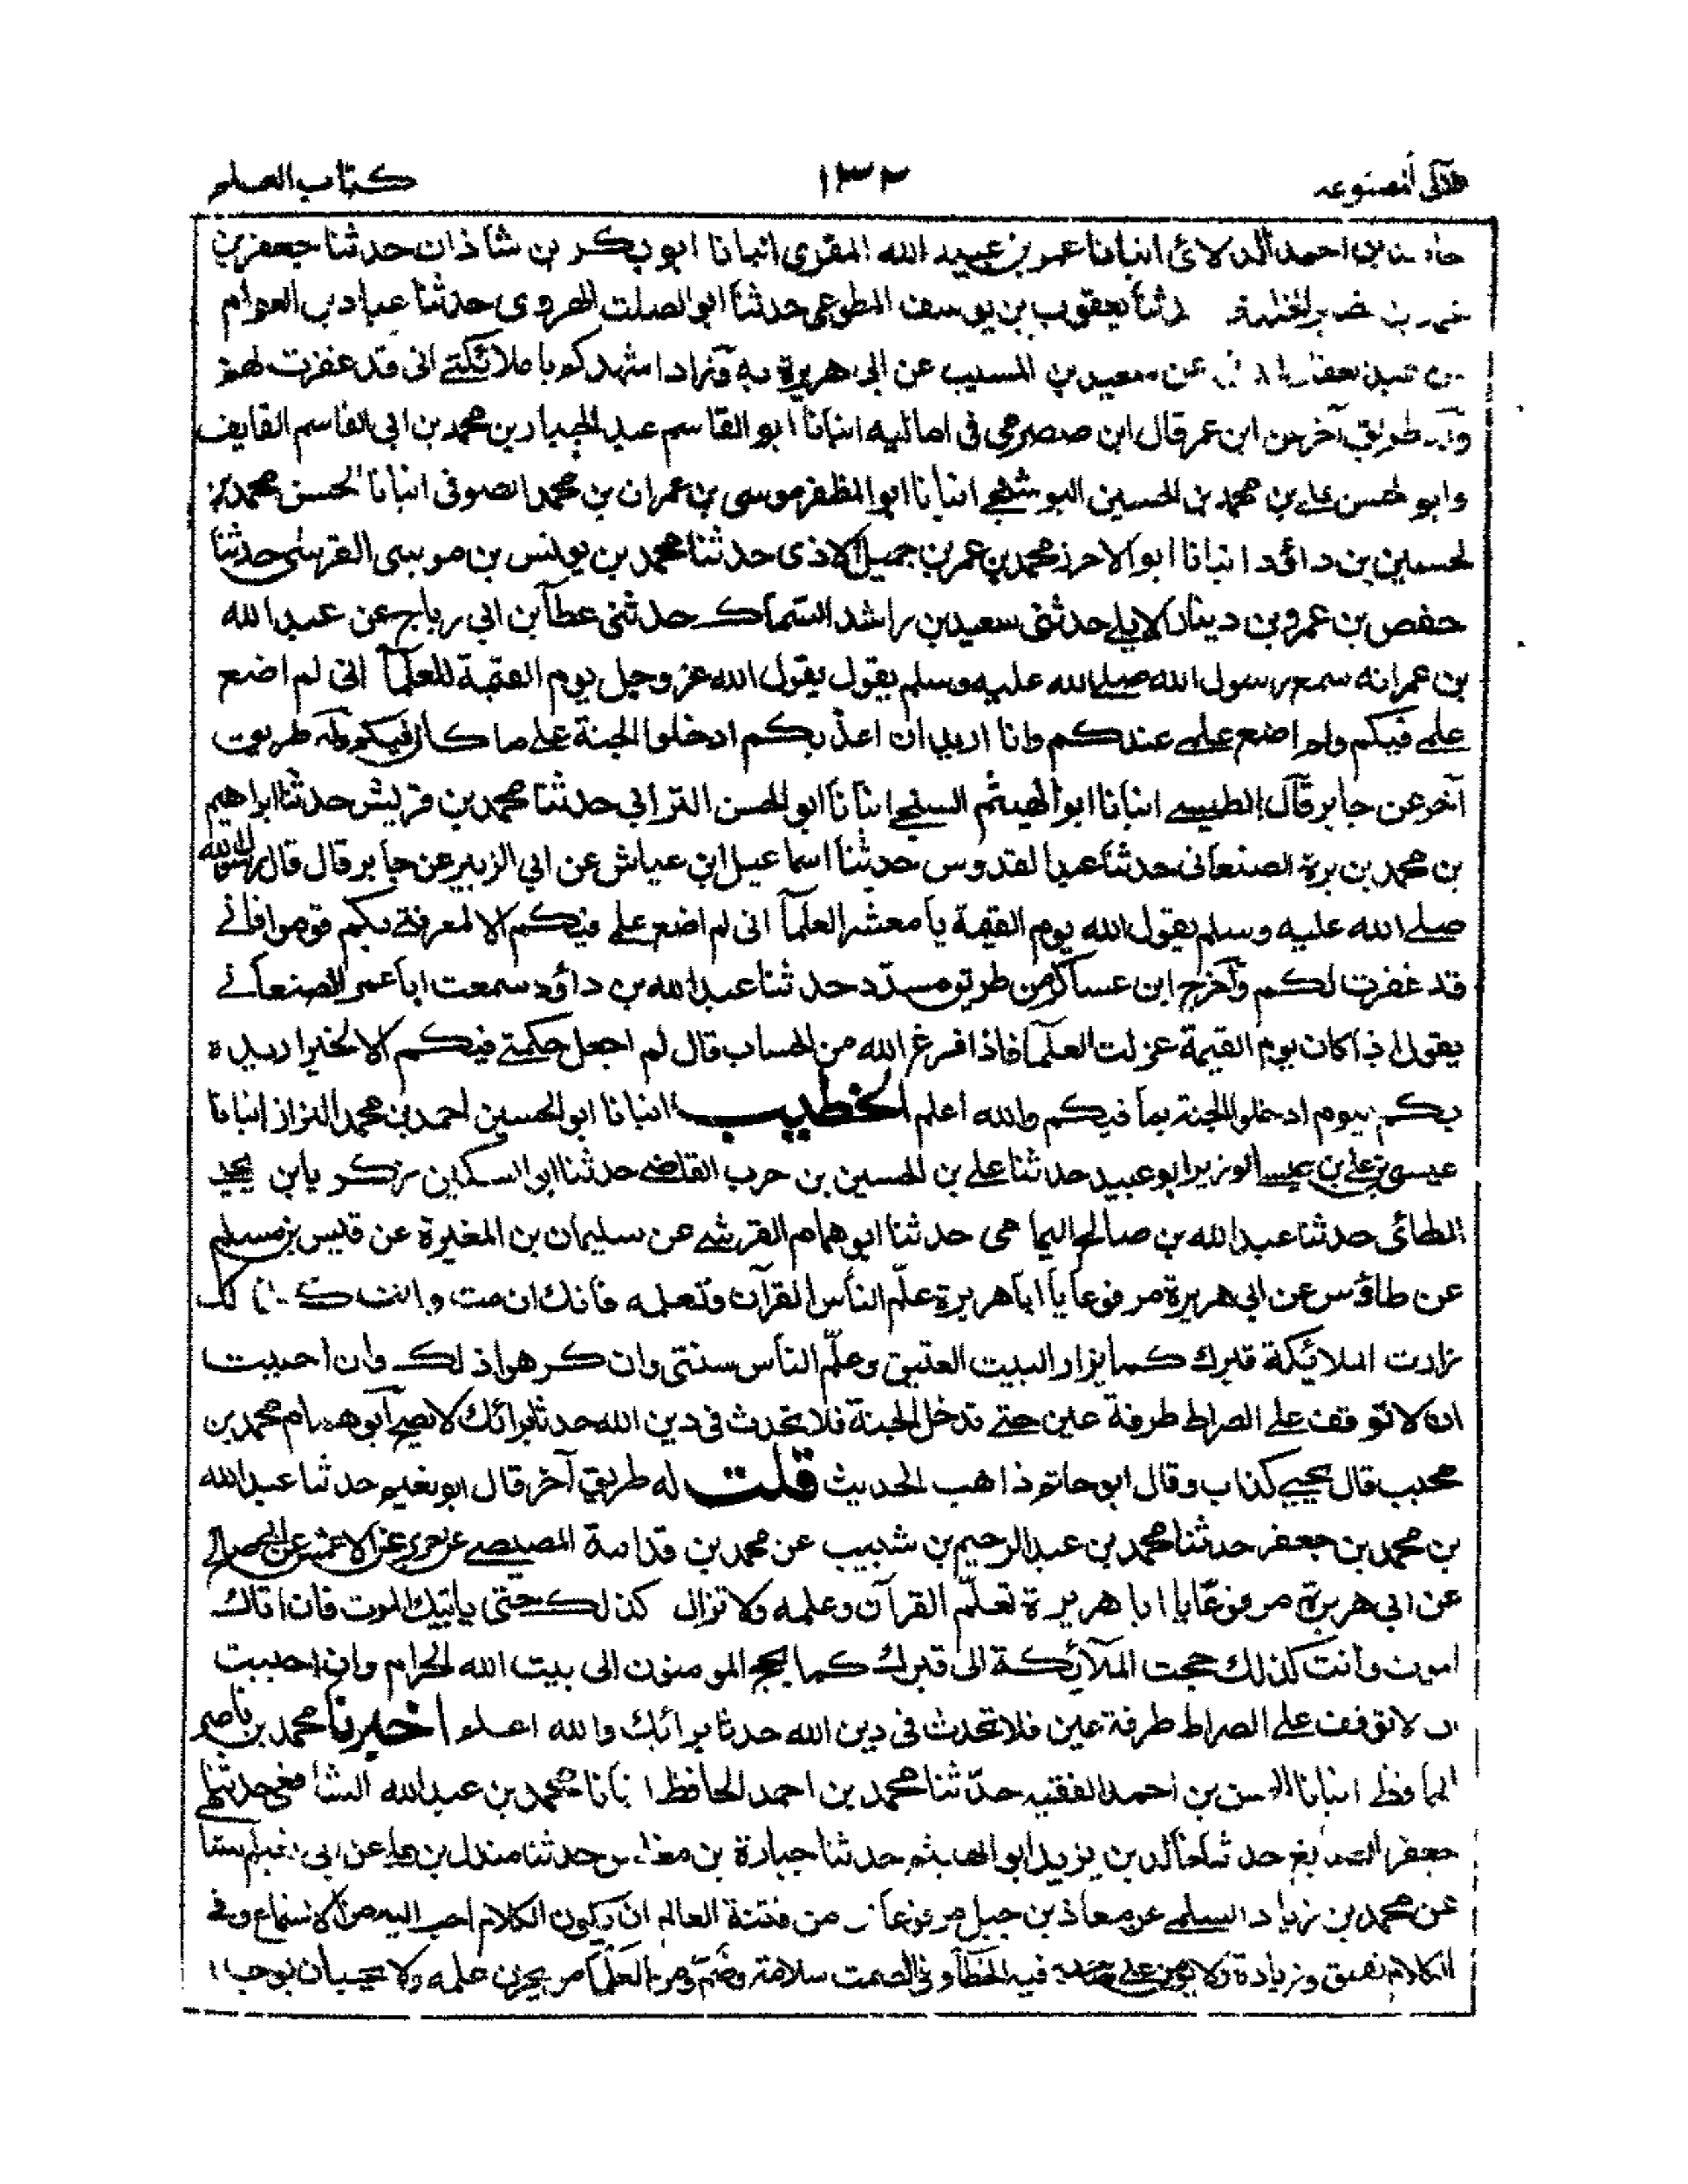 كتاب العلم ١٣٢ اللآلى المصنوعه
بن احمد الدلائى انبانا عمر بن عبيد الله المقرى انبانا ابو بكر بن شاذان حدثنا جعفر بن
يعقوب بن يوسف المطوعى حدثنا ابو الصلت الهروى حدثنا عباد بن العوام
عن سعيد بن المسيب عن ابى هريرة به وزاد اشهدكم يا ملائكتے انى قد غفرت لهم
وله طريق آخر عن ابن عمر قال ابن صصرى فى اماليه انبانا ابو القاسم عبد الجبار بن محمد بن ابى القاسم القايف
وابو الحسن على بن محمد بن الحسين البوشنجے انبانا ابو المظفر موسى بن عمران بن محمد الصوفى انبانا الحسن محمد بن
الحسين بن داؤد انبانا ابو الاحرز محمد بن عمر بن جميل الاذدى حدثنا محمد بن يونس بن موسى القرشى حدثنا
حفص بن عمرو بن دينار الايلے حدثنى سعيد بن راشد السماك حدثنى عطآ بن ابى رباح عن عبد الله
بن عمر انه سمع رسول الله صلے الله عليه وسلم يقول يقول الله عز وجل يوم القيمة للعلمآ انى لم اضع
علمے فيكم ولم اضع علمے عندكم وانا اريد ان اعذبكم ادخلوا الجنة على ما كان فيكم وله طريق
آخر عن جابر قال الطبسے انبانا ابو الهيثم السنجے انبانا ابو الحسن الترابى حدثنا محمد بن قريش حدثنا ابراهيم
بن محمد بن برة الصنعانى حدثنا عبد القدوس حدثنا اسماعيل ابن عياش عن ابى الزبير عن جابر قال قال رسول الله
صلے الله عليه وسلم يقول الله يوم القيمة يا معشر العلمآ انى لم اضع علمے فيكم الا لمعرفتے بكم قوموا فانے
قد غفرت لكم وآخرج ابن عساكر من طريق مسدّد حدثنا عبد الله بن داؤد سمعت ابا عمر الصنعانے
يقول اذا كان يوم القيمة عزلت العلمآ فاذا فرغ الله من الحساب قال لم اجعل حكمتے فيكم الا لخير اريده
بكم يوم ادخلوا الجنة بما فيكم والله اعلم الخطيب انبانا ابو الحسين احمد بن محمد البزاز انبانا
عيسى بن على بن عيسے الوزير ابو عبيد حدثنا على بن الحسين بن حرب القاضے حدثنا ابو السكين زكريا بن يحيى
الطائى حدثنا عبد الله بن صالح اليمامى حدثنا ابو همام القرشے عن سليمان بن المغيرة عن قيس بن مسلم
عن طاؤس عن ابى هريرة مرفوعا يا ابا هريرة علّم الناس القرآن وتعلمه فانك ان مت وانت كذلك
زارت الملائيكة قبرك كما يزار البيت العتيق وعلّم الناس سنتى وان كرهوا ذلك وان احببت
ان لا توقف على الصراط طرفة عين حتے تدخل الجنة فلا تحدث فى دين الله حدثا برائك لا يصح آبو همام محمد بن
محبب قال يحيے كذاب وقال ابو حاتم ذاهب الحديث قلت له طريق آخر قال ابو نعيم حدثنا عبد الله
بن محمد بن جعفر حدثنا محمد بن عبد الرحيم بن شبيب عن محمد بن قدامة المصيصے عن جرير عن الاعمش عن ابى صالح
عن ابى هريرة مرفوعًا يا ابا هريرة تعلّم القرآن وعلمه ولا تزال كذلك حتى ياتيك الموت فان اتاك
الموت وانت كذلك حجت الملآئكة الى قبرك كما يحج المومنون الى بيت الله الحرام وان احببت
ان لا توقف على الصراط طرفة عين فلا تحدث فى دين الله حدثا برائك والله اعلم اخبرنا محمد بن ناصر
الحافظ انبانا الحسن بن احمد الفقيه حدّثنا محمد بن احمد الحافظ انبانا محمد بن عبد الله الشافعى حدثنى
جعفر الصايغ حدثنا خالد بن يزيد ابو الهيثم حدثنا جبارة بن مغلس حدثنا مندل بن على عن ابى نعيم
عن محمد بن زياد السلمے عن معاذ بن جبل مرفوعا من فتنة العالم ان يكون الكلام احب اليه من الاستماع وفے
الكلام تنميق وزيادة ولا يؤمن على فيه الخطآ وفى الصمت سلامة ومن العلمآ من يخزن علمه ولا يحب ان يوجد